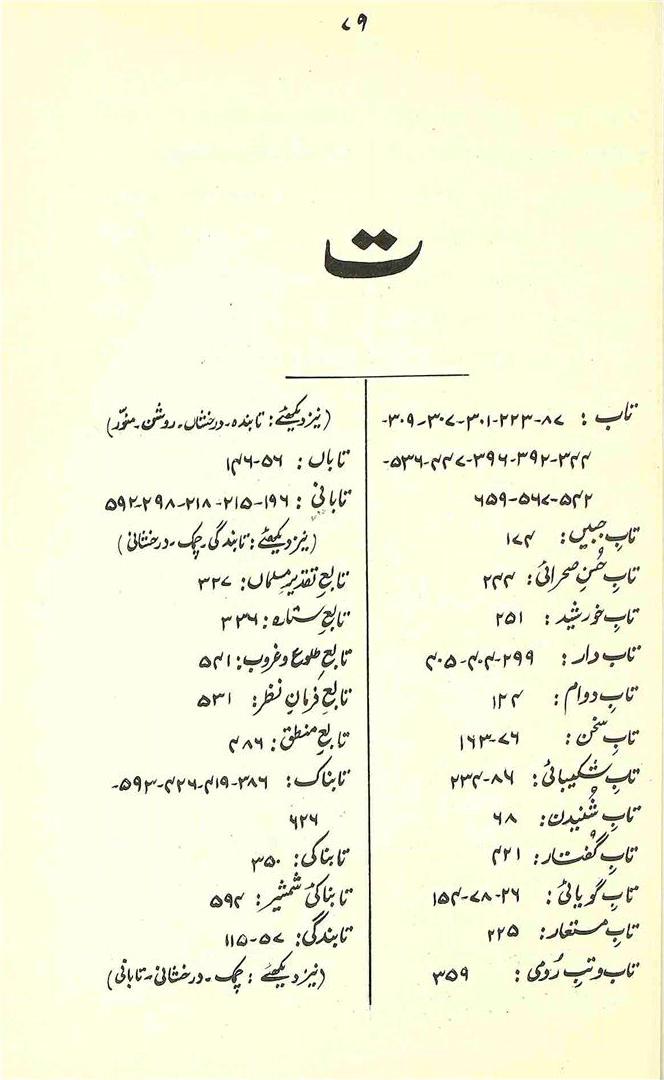 ۷۹
ت
تاب : ۸۷-۲۲۳-۳۰۱-۳۰۷-۳۰۹-
۳۴۴-۳۹۲-۳۹۶-۴۴۷-۵۳۶-
۵۴۲-۵۶۷-۶۵۹
تابِ جبیں: ۱۷۴
تابِ حُسنِ صحرائی: ۲۴۴
تابِ خورشید: ۲۵۱
تاب دار: ۲۹۹-۴۰۴-۴۰۵
تابِ دوام: ۱۲۴
تابِ سخن: ۷۶-۱۶۳
تابِ شکیبائی: ۸۶-۲۳۴
تابِ شُنیدن: ۶۸
تابِ گُفتار: ۴۲۱
تابِ گویائی: ۲۶-۷۸-۱۵۴
تابِ مستعار: ۲۲۵
تاب و تبِ رُومی: ۳۵۹
(نیز دیکھئے: تابندہ-درخشاں-روشن-منوّر)
تاباں: ۵۶-۱۴۶
تابانی: ۱۹۶-۲۱۵-۲۱۸-۲۹۸-۵۹۲
(نیز دیکھئے: تابندگی-چمک-درخشانی)
تابعِ تقدیرِ مسلماں: ۳۲۷
تابعِ ستارہ: ۳۳۶
تابعِ طلوع و غروب: ۵۴۱
تابعِ فرمانِ نظر: ۵۳۱
تابعِ منطق: ۴۸۶
تابناک: ۳۸۶-۴۱۹-۴۲۶-۵۹۳-
۶۲۶
تابناکی: ۳۵۰
تابناکیٔ شمشیر: ۵۹۴
تابندگی: ۵۷-۱۱۵
(نیز دیکھئے: چمک-درخشانی-تابانی)